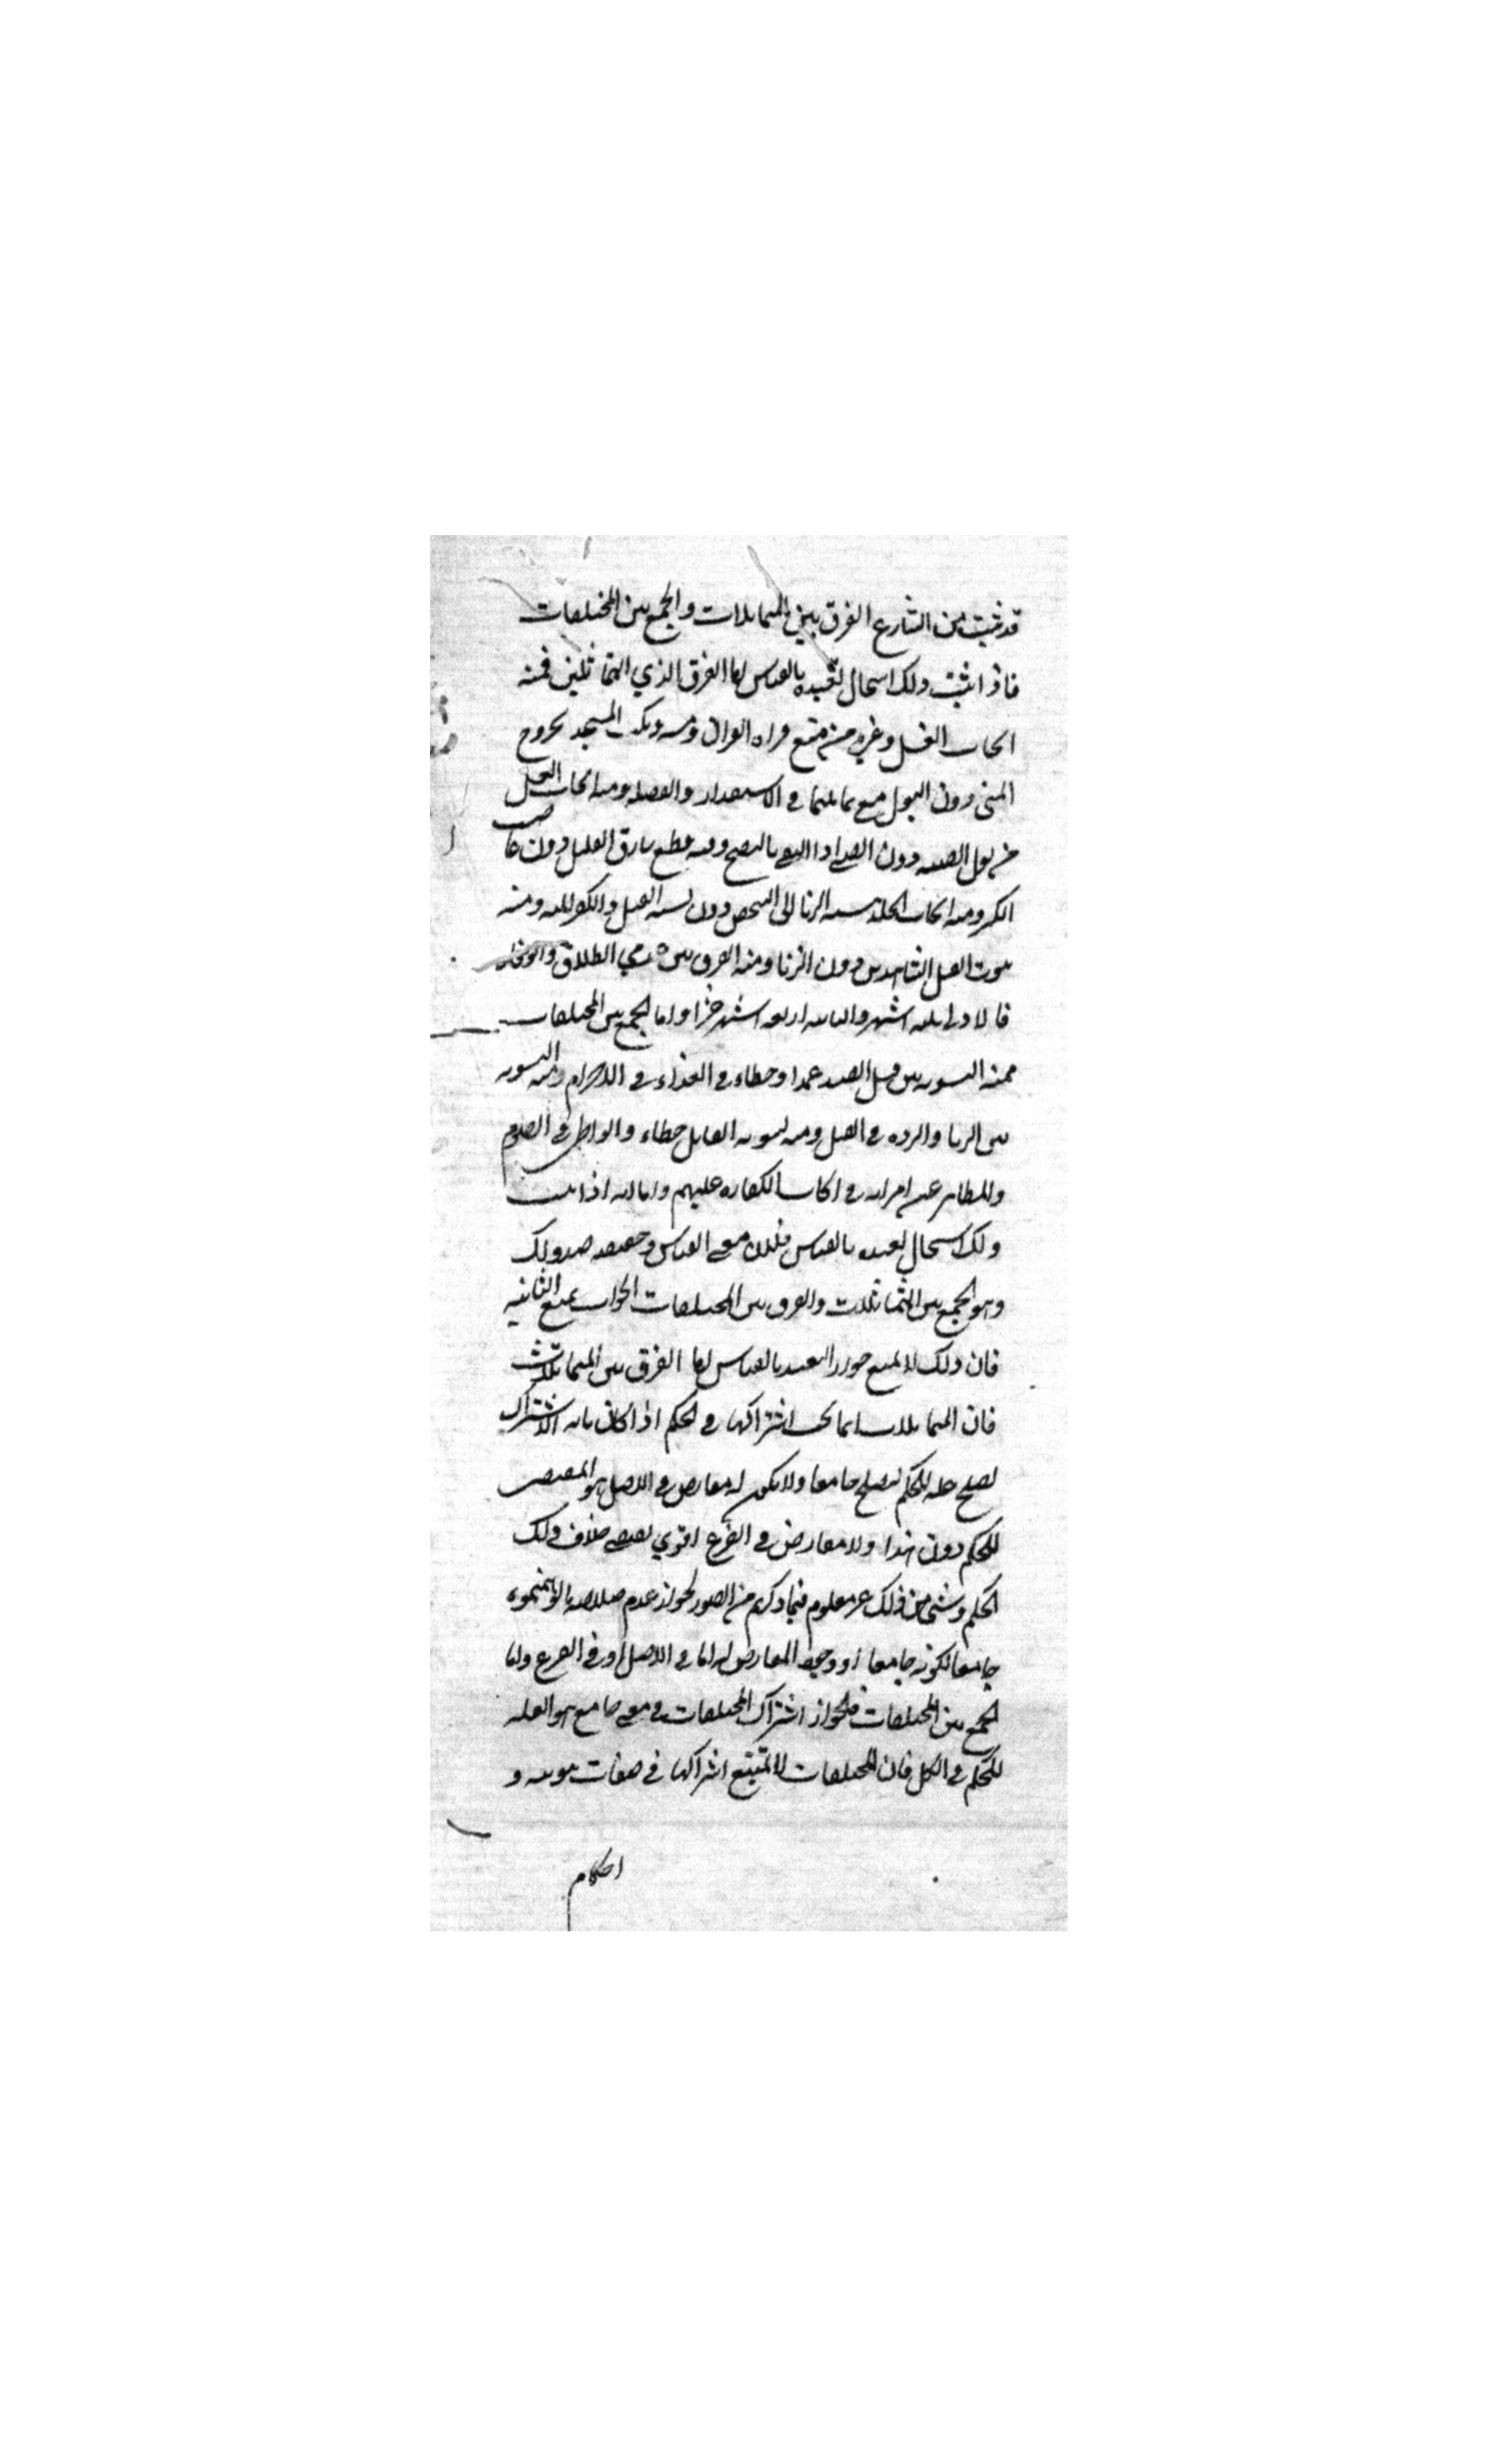 قد ثبت من الشارع الفرق بين المتماثلات والجمع بين المختلفات
فاذا ثبت ذلك استحال تعبده بالقياس اما الفرق الذي المتماثلين فمنه
ايجاب الغسل وغيره من منع قراة القران ومسه ومكث المسجد بخروج
المني دون البول مع تماثلهما في الاستقذار والفضله ومنه ايجاب الغسل
من بول الصبيه دون الصبي اذا اكتفي بالنضح ومنه قطع سارق القليل دون غاصب
الكثير ومنه ايجاب الجلد بنسبه الزنا الى الشخص دون نسبه القتل والكفر اليه ومنه
ثبوت القتل بشاهدين دون الزنا ومنه الفرق بين عدتي الطلاق والوفاه
فالاولى ثلثه اشهر والثانيه اربعه اشهر وعشرا واما الجمع بين المختلفات
فمنه التسويه بين قتل الصيد عمدا وخطاء في الفداء في الاحرام ومنه التسويه
بين الزنا والرده في القتل ومنه تسويه القاتل خطاء والواطي في الصوم
والمظاهر عن امراته في ايجاب الكفاره عليهم واما انه اذا ثبت
ذلك استحال تعبده بالقياس فلان معنى القياس وحقيقته ضد ذلك
وهو الجمع بين المتماثلات والفرق بين المختلفات الجواب بمنع الثانيه
فان ذلك لا يمنع جواز التعبد بالقياس اما الفرق بين المتماثلات
فان المتماثلات انما يجب اشتراكها في الحكم اذا كان ما به الاشتراك
يصلح عله للحكم ليصلح جامعا ولا يكون له معارض في الاصل هو المقتضي
للحكم دون هذا ولا معارض في الفرع اقوي يقتضي خلاف ذلك
الحكم وشي من ذلك غير معلوم فيما ذكرتم من الصور لجواز عدم صلاحيه ما توهمتموه
جامعا لكونه جامعا او وجود المعارض له اما في الاصل او في الفرع واما
الجمع بين المختلفات فلجواز اشتراك المختلفات في معنى جامع هو العله
للحكم في الكل فان المختلفات لا يمتنع اشتراكها في صفات ثبوتيه و
احكام